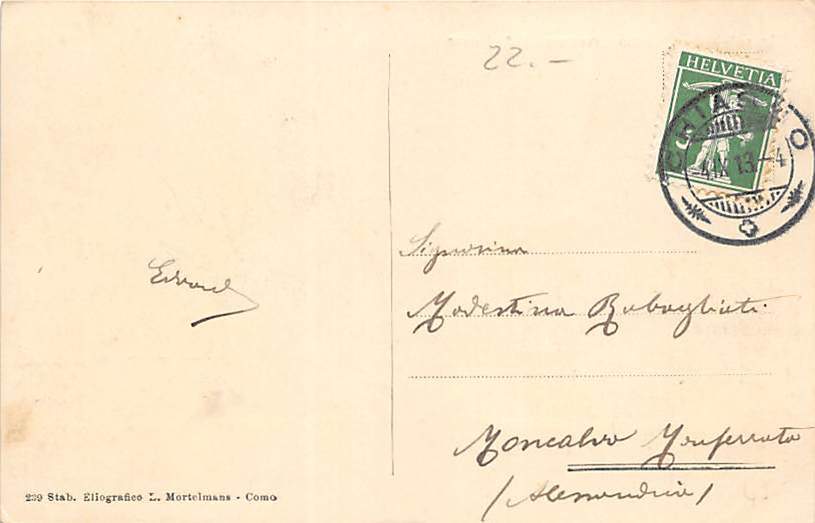 22.-
HELVETIA
CHIASSO
-4.IX.13.-4
Signorina
Modestina Rabagliati
Moncalvo Monferrato
(Alessandria)
239 Stab. Eliografico L. Mortelmans - Como